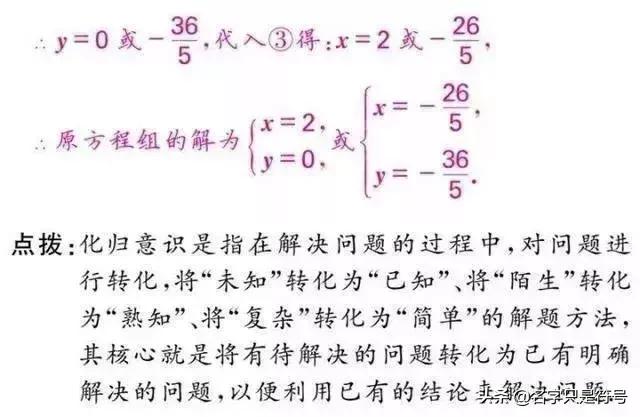 ∴ y=0 或 -36/5,代入③得:x=2 或 -26/5,
∴ 原方程组的解为{x=2, y=0, 或{x=-26/5, y=-36/5.
点拨:化归意识是指在解决问题的过程中,对问题进
行转化,将“未知”转化为“已知”、将“陌生”转化
为“熟知”、将“复杂”转化为“简单”的解题方法,
其核心就是将有待解决的问题转化为已有明确
解决的问题,以便利用已有的结论来解决问题
头条 @名字只是符号